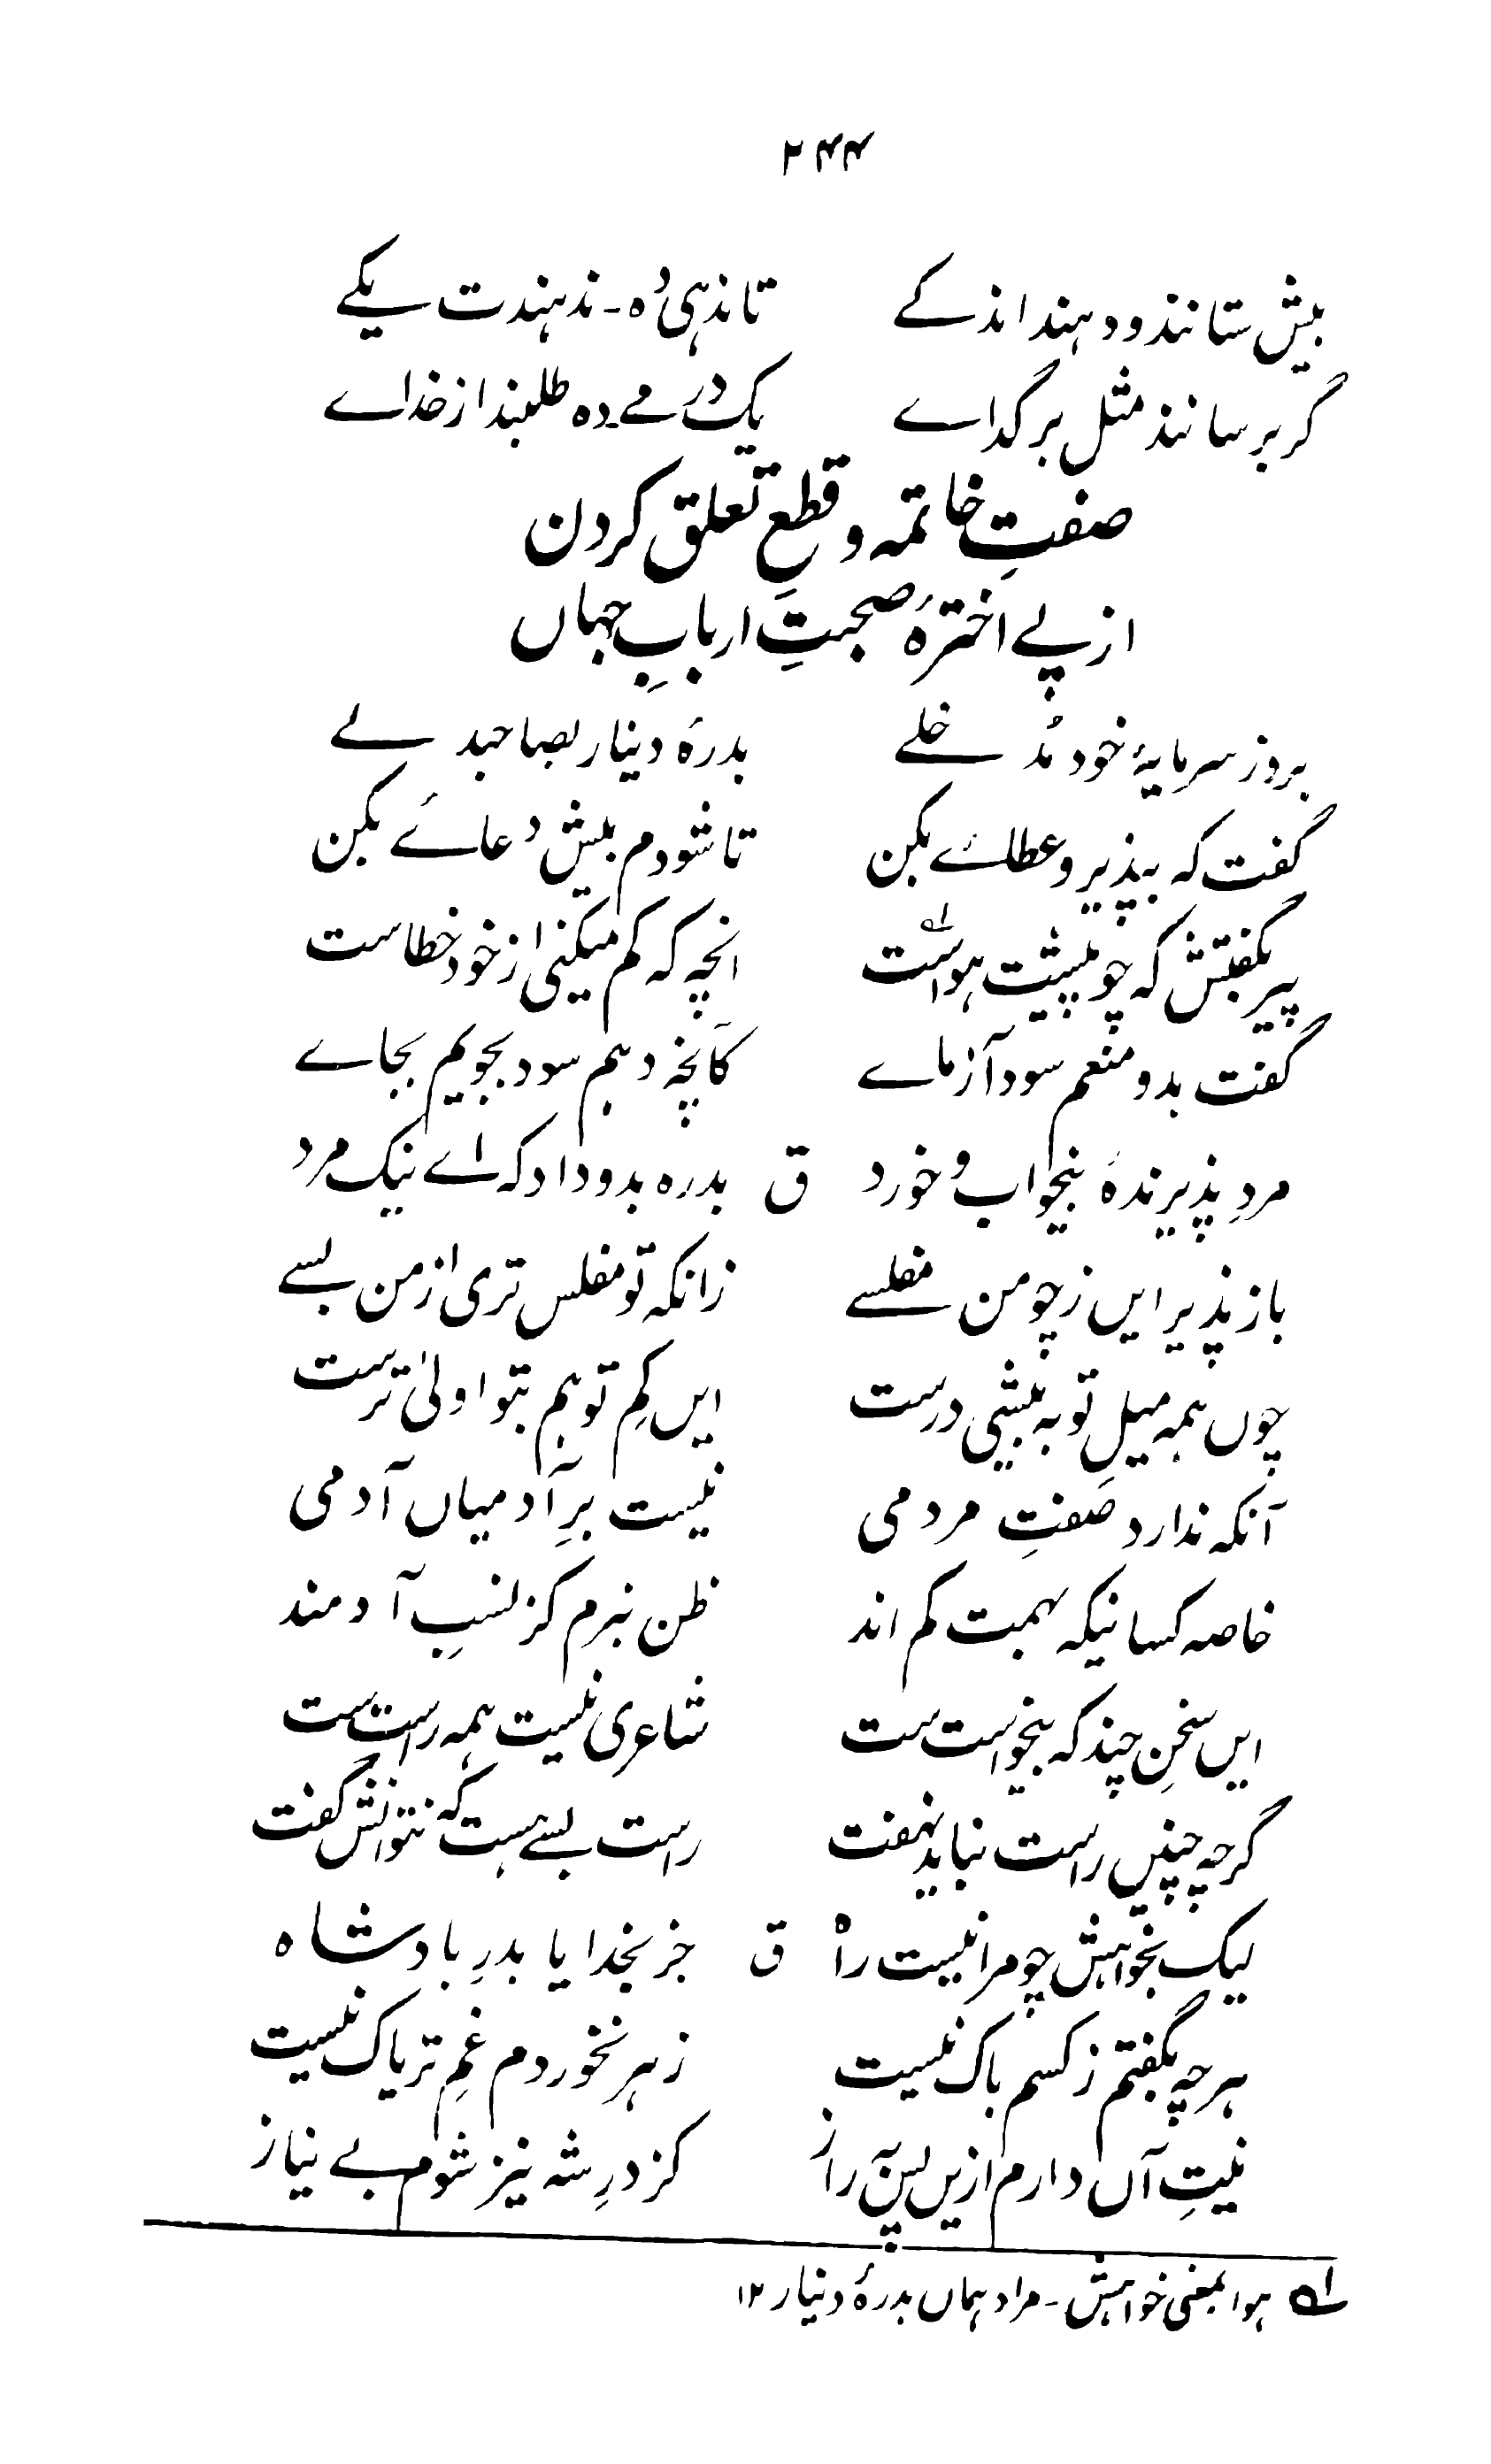 ۲۴۴
بیش ستانند و دہند اندکے تا ندہی دُہ۔ ندہندت یکے
گر برسانند مثل بر گداے یک درمے دہ طلبند از خداے
صفتِ خاتمہ و قطعِ تعلق کردن
از پے اخترۂ صحبتِ اربابِ جہاں
بروز سرمایۂ خود مُدخلے بدرۂ دینار بصاحبدلے
گفت کہ بپذیر و عطائے بکن تا شودم بیش دعائے بکن
پیر بگفتش کہ چو بیشت ہواست۱؎ انچہ کہ کم میکنی از خود خطاست
گفت بدو منعم سود آزماے کآنچہ دہم سود بجویم بجاے
مردِ پذیرندۂ بیخواب و خورد ق بدرہ بدو داد کہ اے نیک مرد
باز پذیر ایں ز چو من مفلسے زانکہ تو مفلس تری از من بسے
چوں ہمہ میلِ تو بہ بیشی درست ایں کمِ تو ہم بتو اولیٰ ترست
آنکہ ندارد صفتِ مردمی نیست برِ آدمیاں آدمی
خاصہ کسانیکہ بہمت کم اند ظن نبرم کز نسبِ آدمند
ایں سخنِ چند کہ بیخواست ست شاعری نیست ہمہ راست ست
گرچہ چنیں راست نباید نہفت راست بسے ہست کہ نتوانش گفت
لیک بخواہش چو مرا نیست راہ ق جز بخدا یا بدرِ بادشاہ
ہرچہ بگفتم ز کسم باک نیست زہر نخوردم غمِ تریاک نیست
نیتِ آں دارم ازیں پس براز کز درِ شہ نیز شوم بے نیاز
۱؎ ہوا بمعنی خواہش۔ مراد ہماں بدرۂ دینار ۱۲